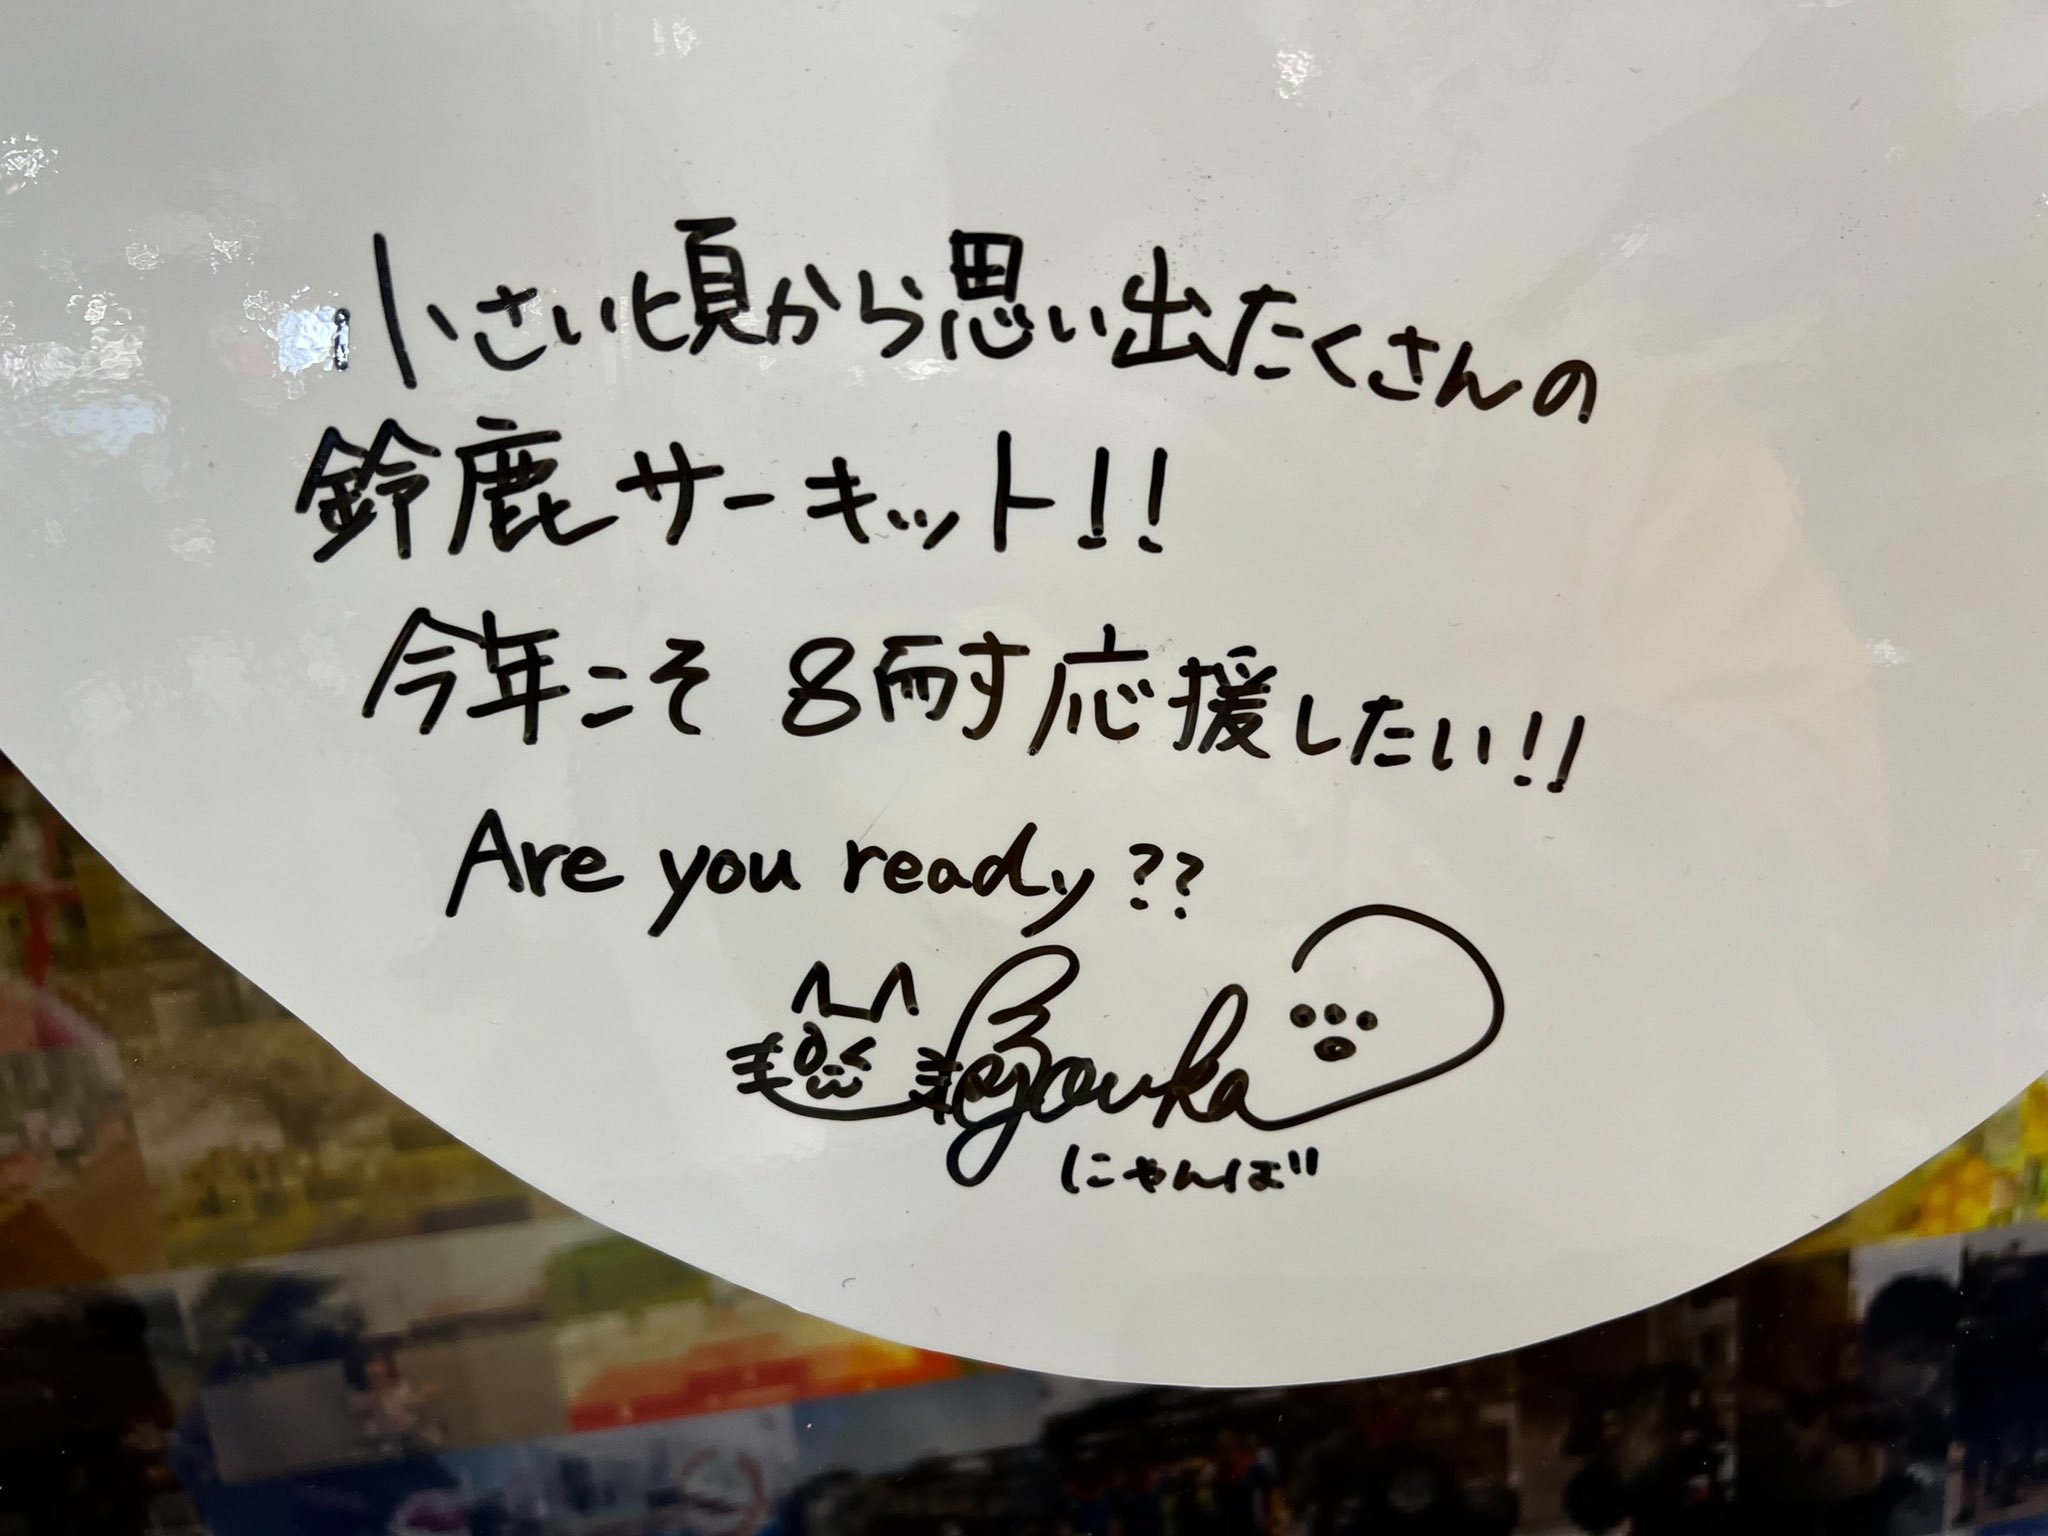 小さい頃から思い出たくさんの
鈴鹿サーキット!!
今年こそ 8耐応援したい!!
Are you ready??
にゃんば"